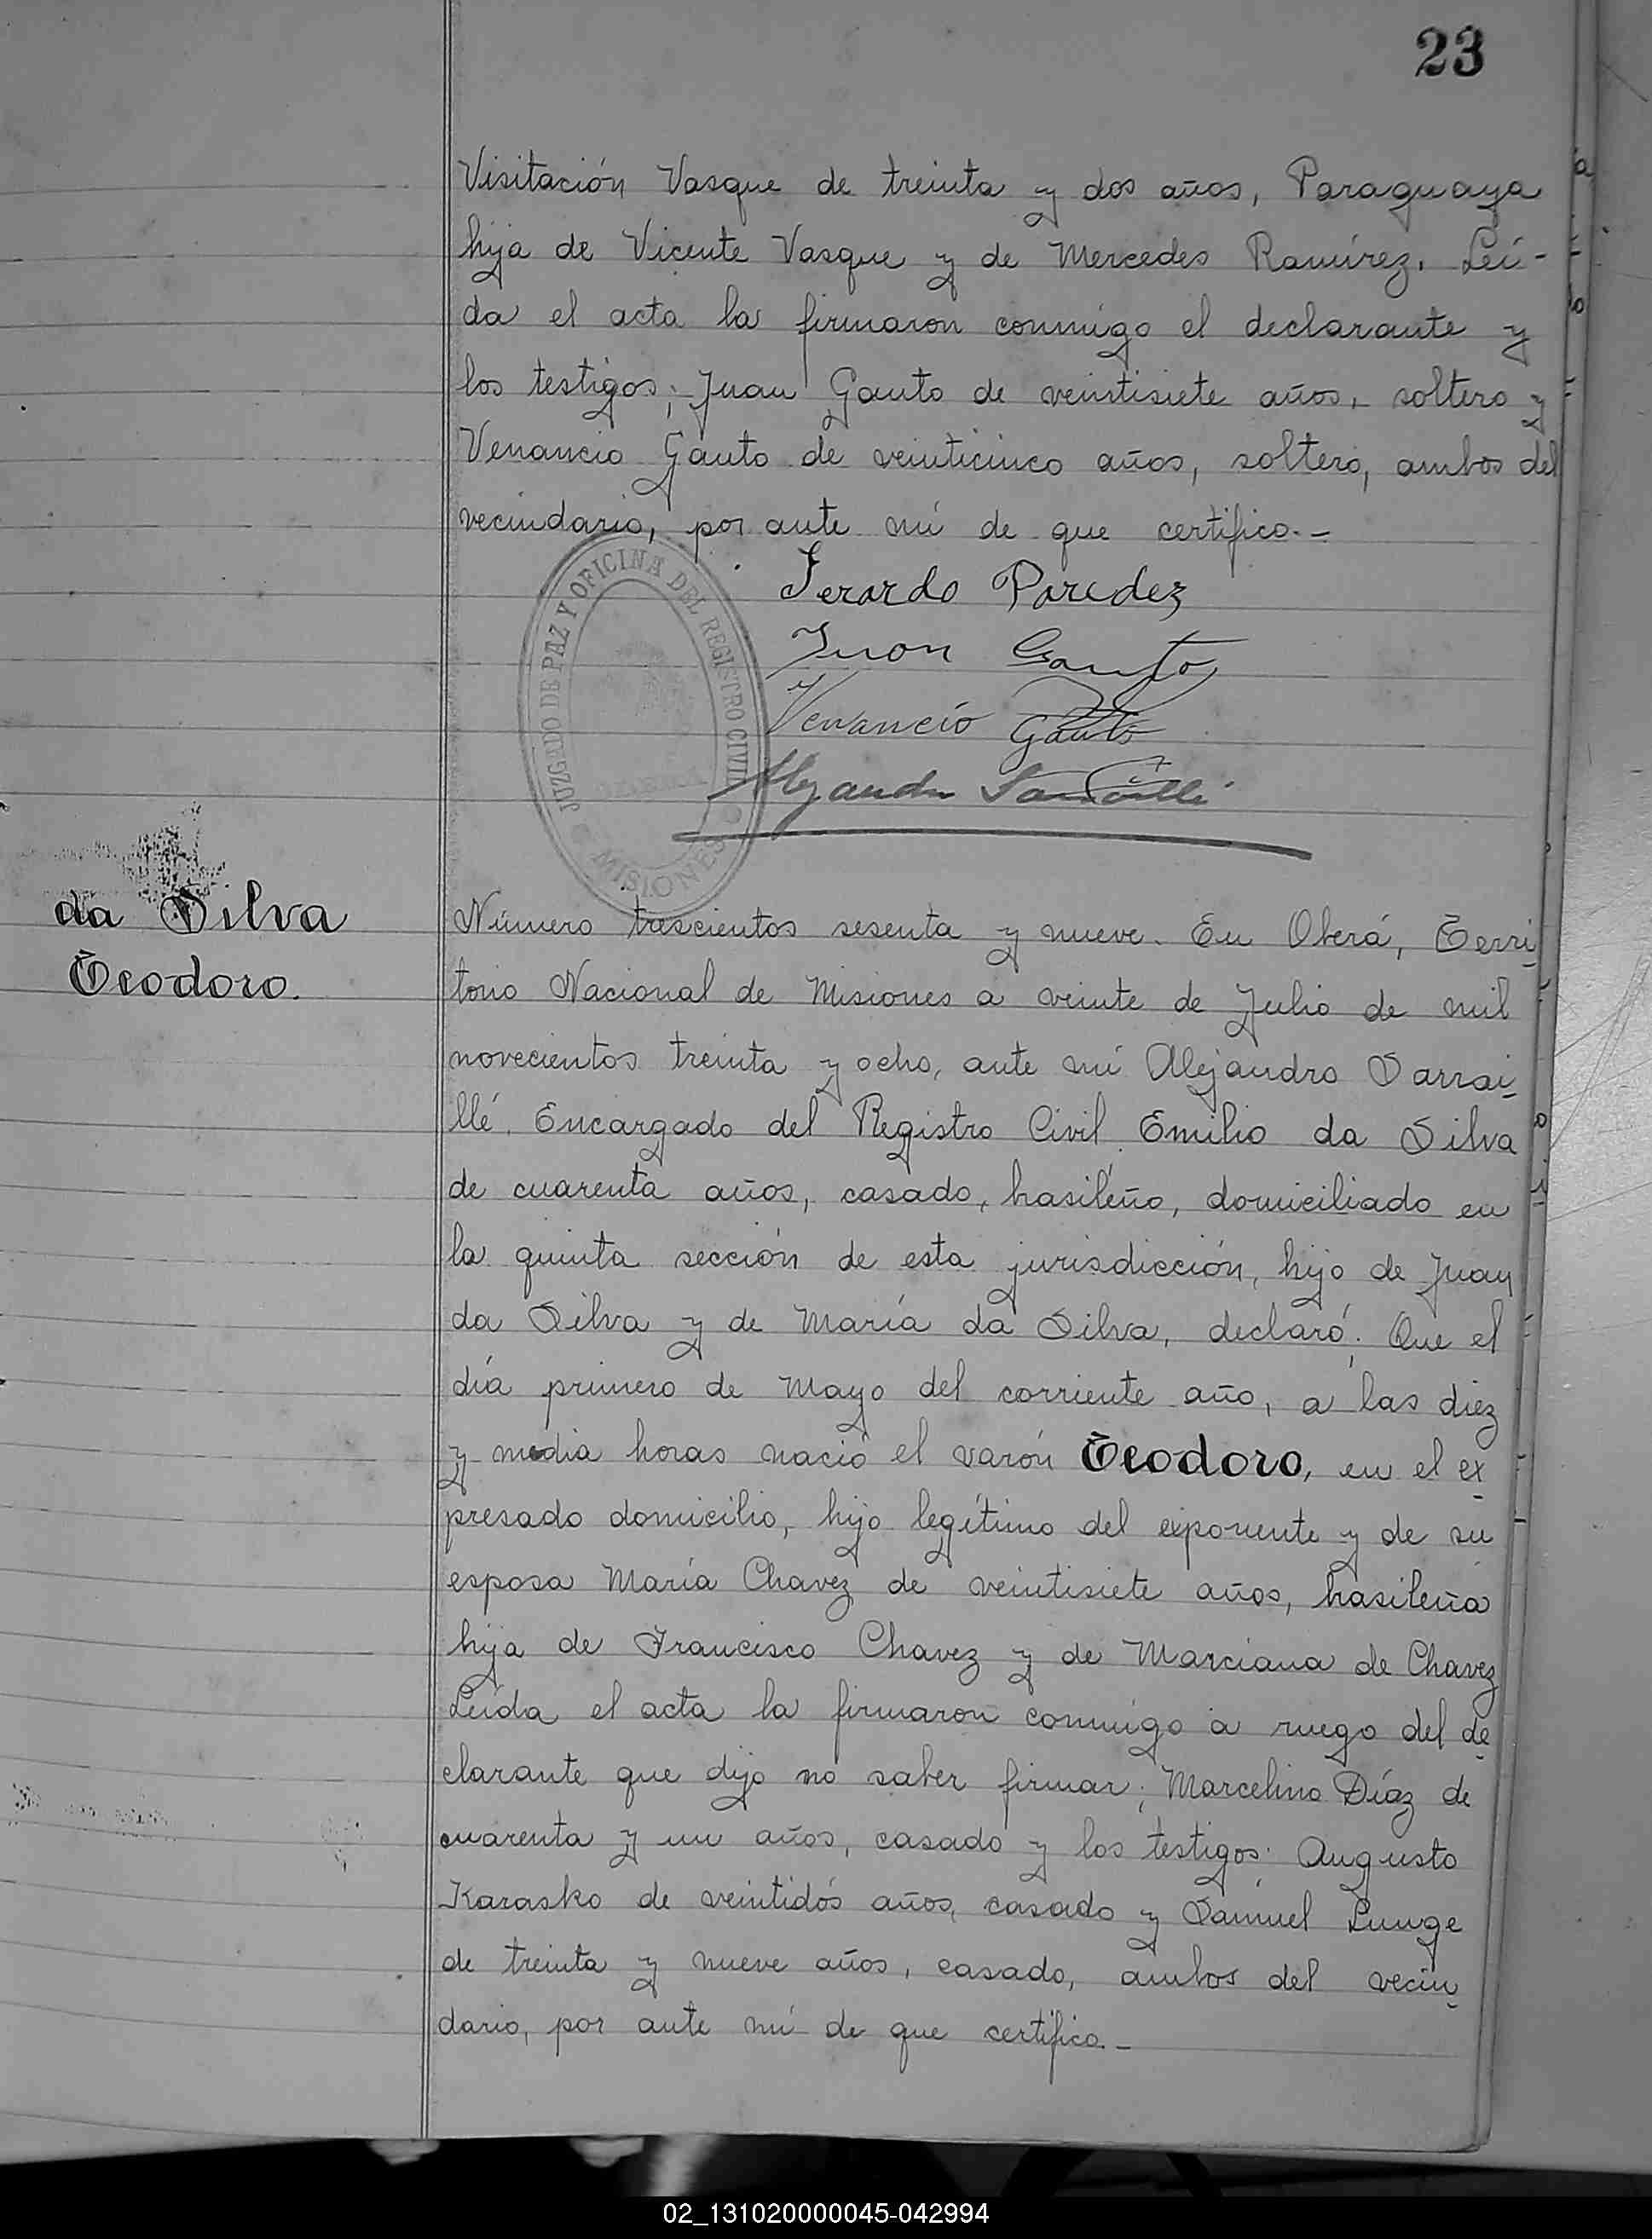 23
Visitación Vasque de treinta y dos años, Paraguaya
hija de Vicente Vasque y de Mercedes Ramírez. Leí-
da el acta la firmaron conmigo el declarante y
los testigos; Juan Gauto de veintisiete años, soltero y
Venancio Gauto de veinticinco años, soltero, ambos del
vecindario, por ante mí de que certifico.-
JUZGADO DE PAZ Y OFICINA DEL REGISTRO CIVIL
MISIONES
Gerardo Paredez
Juan Gauto
Venancio Gauto
Alejandro
da Silva
Teodoro.
Número trescientos sesenta y nueve. En Oberá, Terri-
torio Nacional de Misiones a veinte de Julio de mil
novecientos treinta y ocho, ante mí Alejandro Sarrai-
llé. Encargado del Registro Civil. Emilio da Silva
de cuarenta años, casado, brasileño, domiciliado en
la quinta sección de esta jurisdicción, hijo de Juan
da Silva y de María da Silva, declaró: Que el
día primero de Mayo del corriente año, a las diez
y media horas nació el varón Teodoro, en el ex-
presado domicilio, hijo legítimo del exponente y de su
esposa María Chavez de veintisiete años, brasileña
hija de Francisco Chavez y de Marciana de Chavez
Leída el acta la firmaron conmigo a ruego del de-
clarante que dijo no saber firmar; Marcelino Díaz de
cuarenta y un años, casado y los testigos: Augusto
Karasko de veintidós años, casado y Samuel Lunge
de treinta y nueve años, casado, ambos del vecin-
dario, por ante mí de que certifico.-
02_131020000045-042994